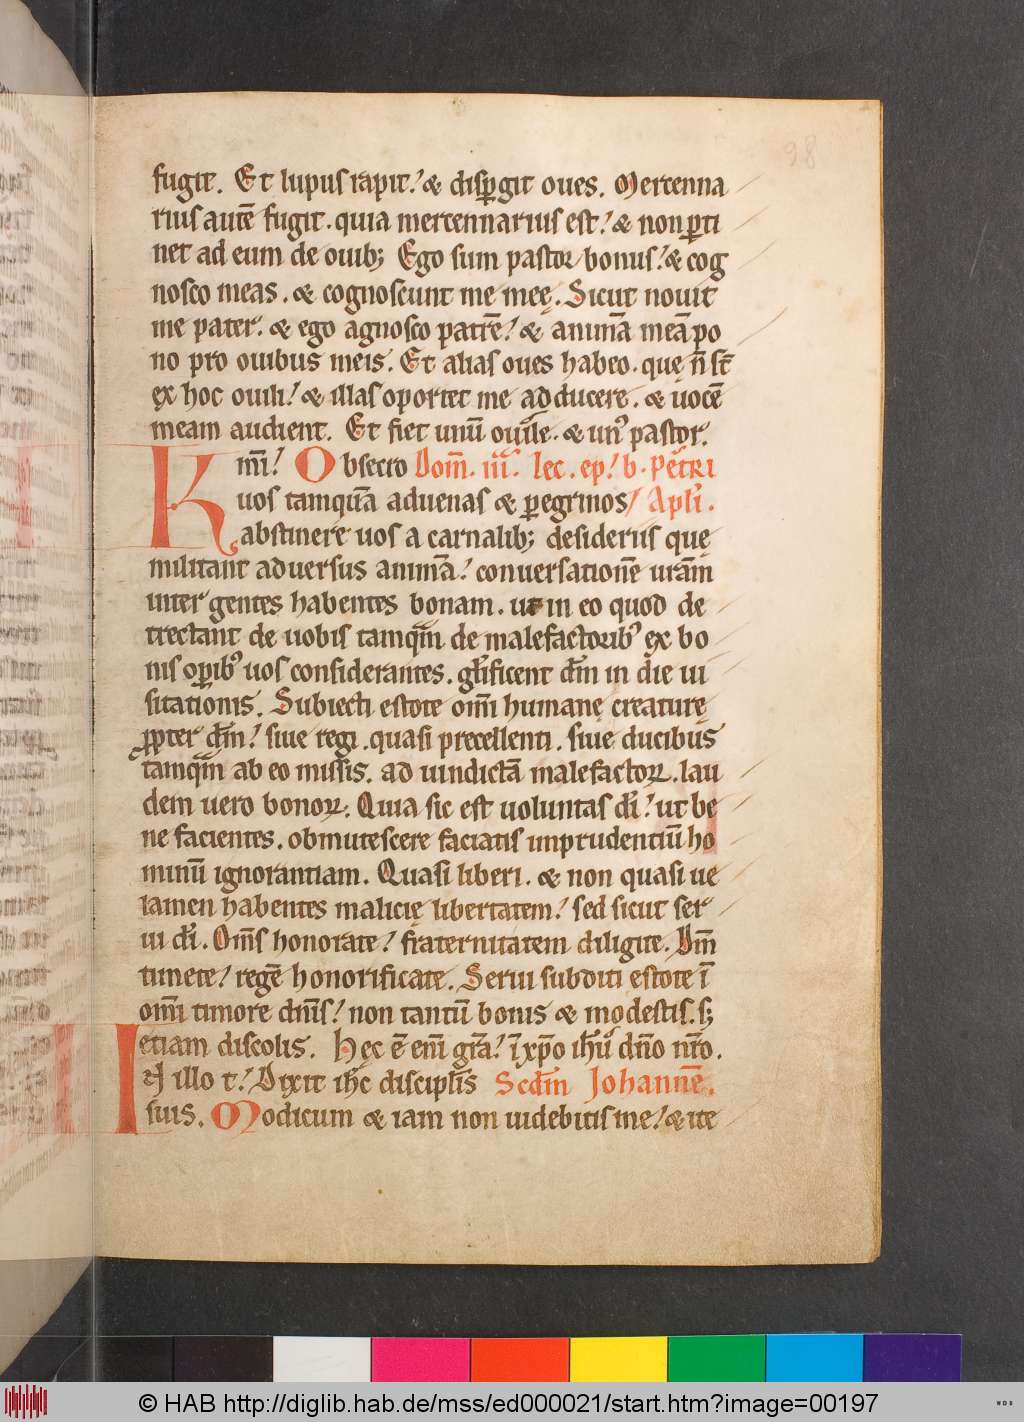 98
fugit. Et lupus rapit! & disp̱git oues. Mercenna
rius autē fugit. quia mercennarius est! & non p̱ti
net ad eum de ouib; Ego sum pastor bonus! & cog
nosco meas. & cognoscunt me meę. Sicut nouit
me pater. & ego agnosco patrē! & animā meā po
no pro ouibus meis. Et alias oues habeo. quę n̄ st̄
ex hoc ouili! & illas oportet me adducere. & uocē
meam audient. Et fiet unū ouile. & un᾽ pastor.
Km̄i! Obsecro Dom̄. iii. lec. ep! b. petri
uos tamquā aduenas & p̱egrinos Apl̄i.
abstinere uos a carnalib; desideriis quę
militant aduersus animā! conuersationē urām
inter gentes habentes bonam. ut in eo quod de
trectant de uobis tamqm̄ de malefactorib᾽ ex bo
nis op̱ib᾽ uos considerantes. gl̄ificent dm̄ in die ui
sitationis. Subiecti estote om̄i humanę creaturę
ꝓpter dm̄! siue regi. quasi precellenti. siue ducibus
tamqm̄ ab eo missis. ad uindictā malefactoꝝ. lau
dem uero bonoꝝ. Quia sic est uoluntas dī! ut be
ne facientes. obmutescere faciatis imprudentiū ho
minū ignorantiam. Quasi liberi. & non quasi ue
lamen habentes malicię libertatem! sed sicut ser
ui dī. Om̄s honorate! fraternitatem diligite. Dm̄
timete! regē honorificate. Serui subditi estote ī
om̄i timore dn̄is! non tantū bonis & modestis. s;
etiam discolis. Hęc ē eni̅ gr̄a! ī xp̄o ih̄u dn̄o nr̄o.
In illo t! Dixit ih̄c disciplīs Scdm̄ Johannē.
suis. Modicum & iam non uidebitis me! & ite
© HAB http://diglib.hab.de/mss/ed000021/start.htm?image=00197